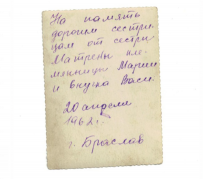 На память
дорогим сестри
цам от сестры
Матрены пле
мянницы Марии
и внука Васи
20 апреля
1962 г.
г. Браслав